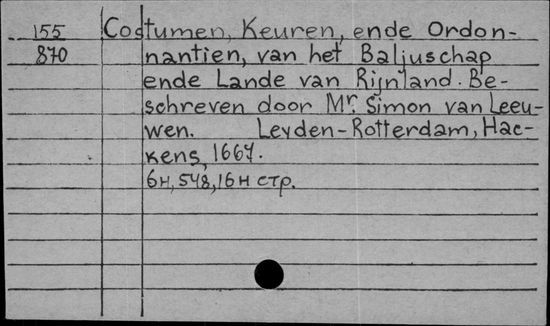 155 Costumen, Keuren, ende Ordon-
870 nantien, van het Baljuschap
ende Lande van Rijnland. Be-
schreven door Mr. Simon van Leeu-
wen. Leyden-Rotterdam, Hac-
kens, 1667.
6н, 548, 16н стр.